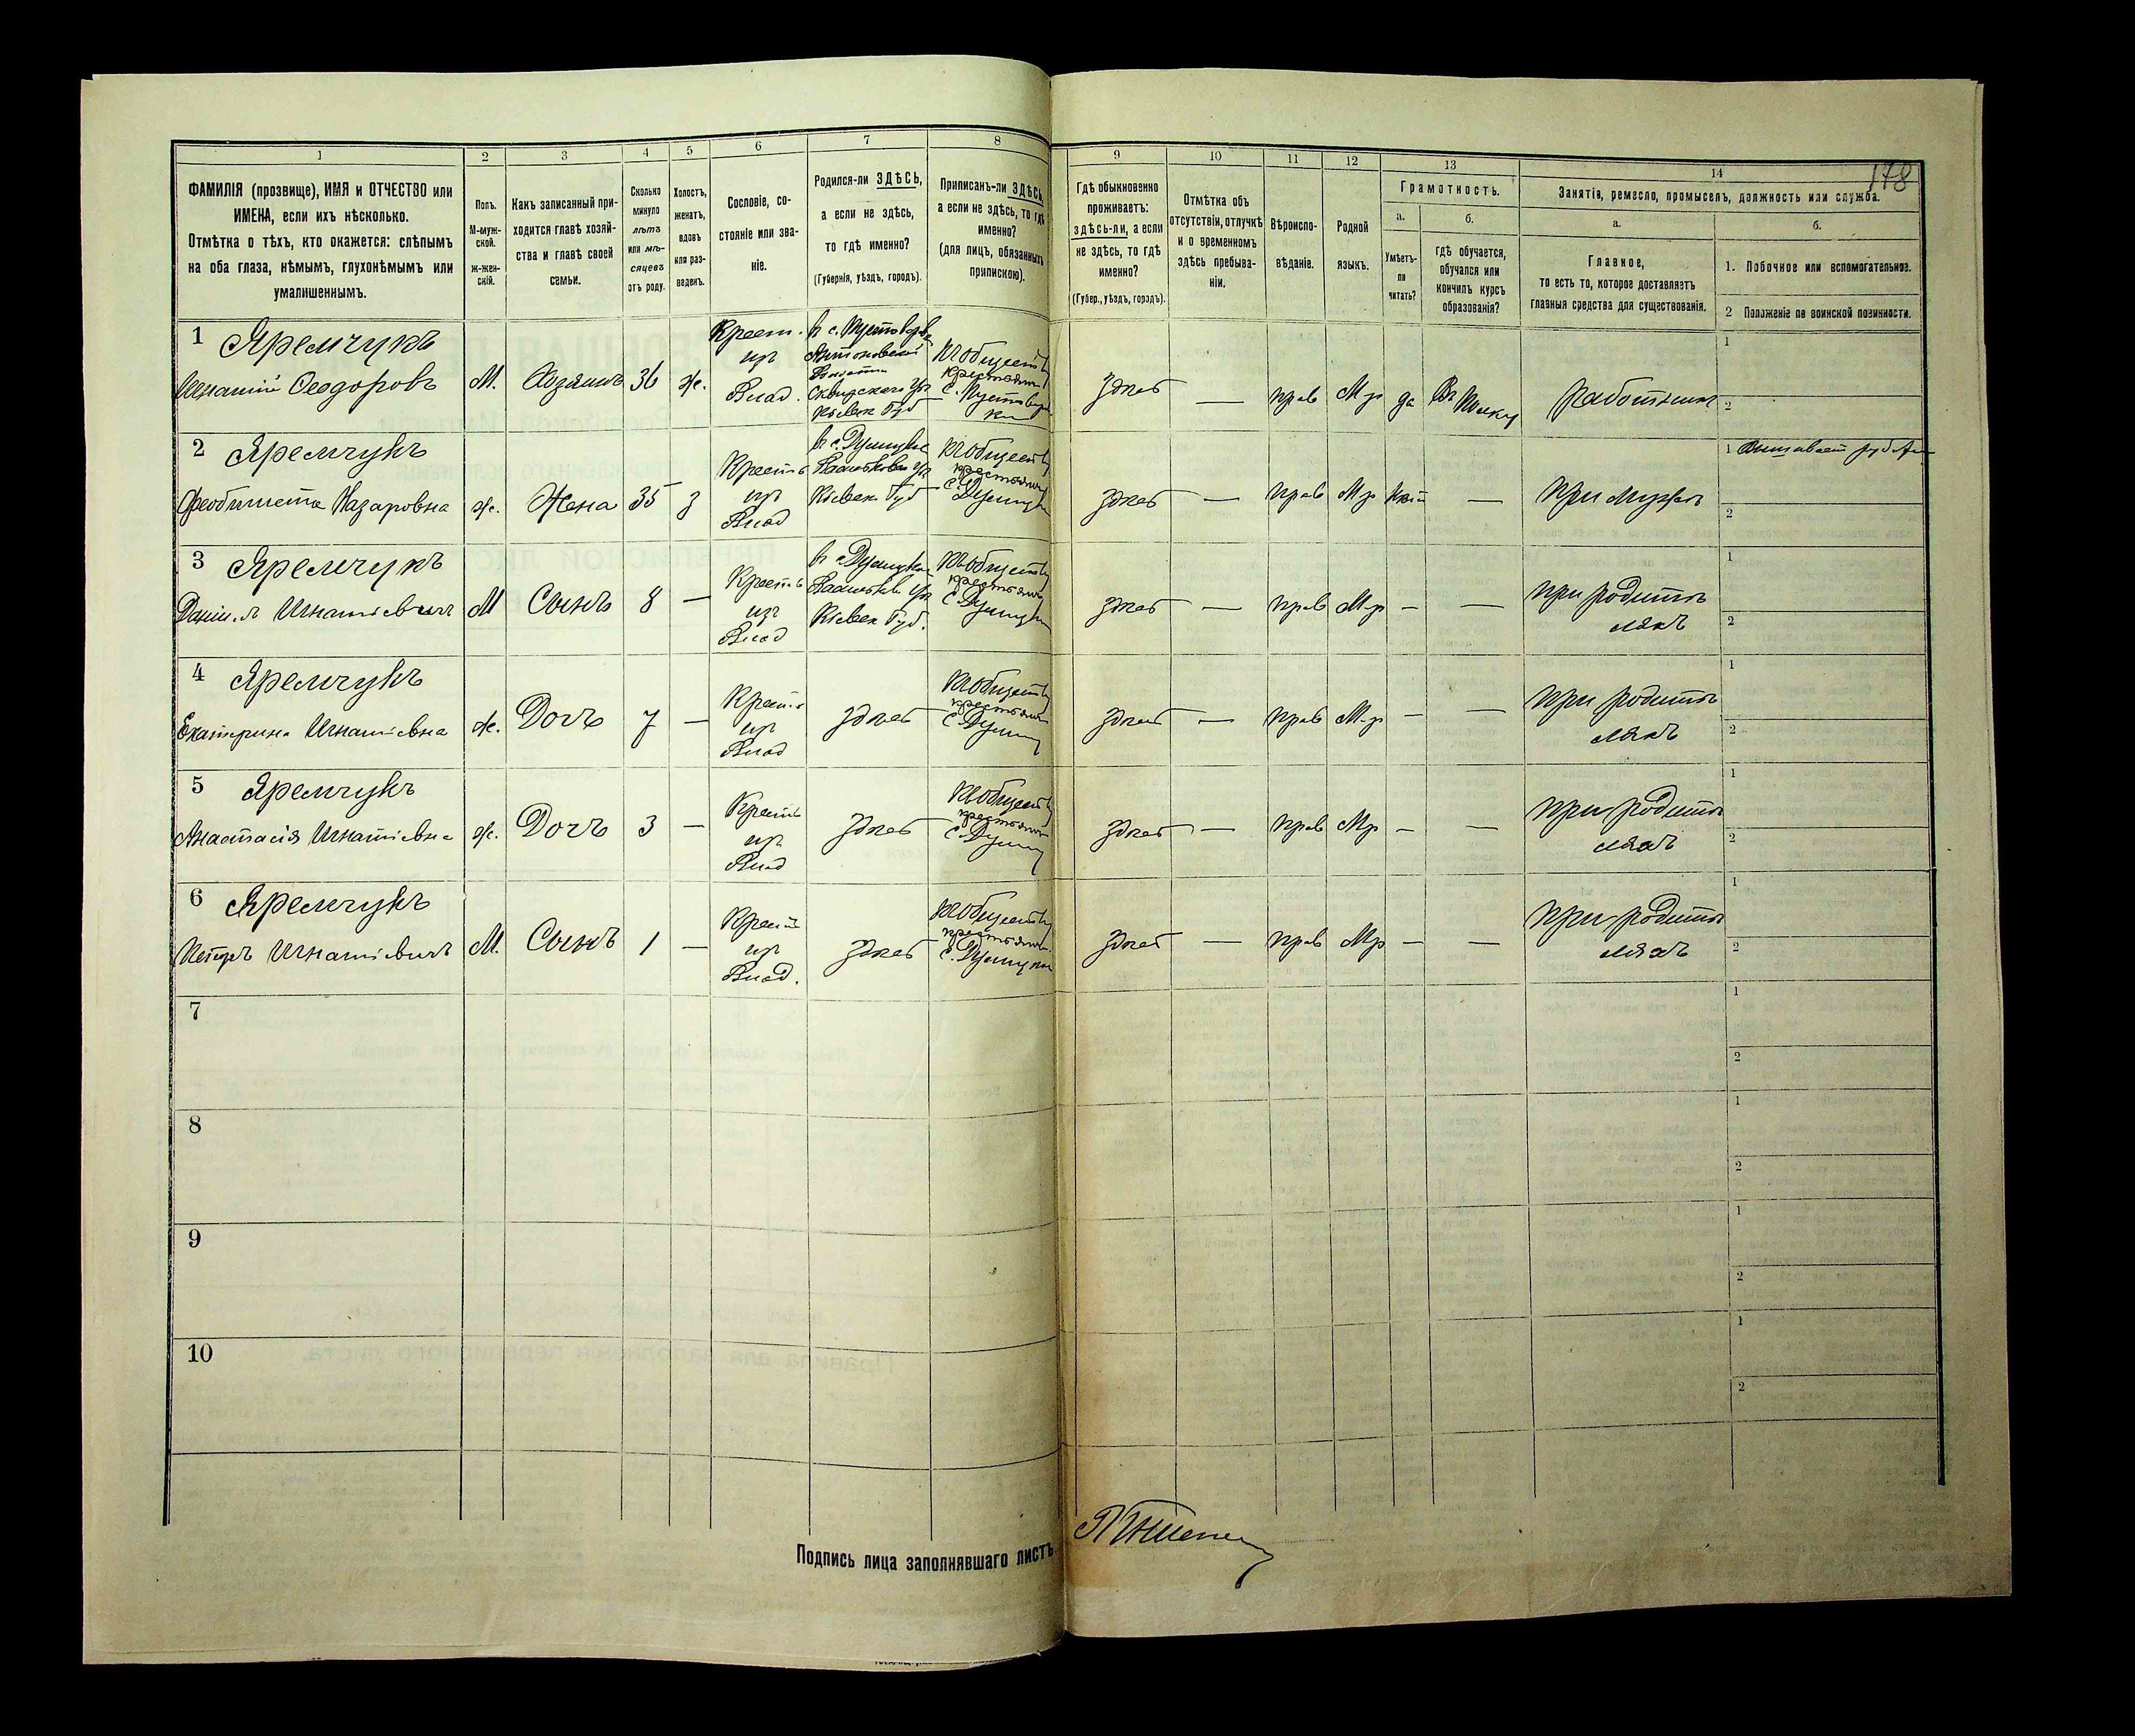 178
1 2 3 4 5 6 7 8 9 10 11 12 13 14
ФАМИЛІЯ (прозвище), ИМЯ и ОТЧЕСТВО или
ИМЕНА, если ихъ нѣсколько.
Отмѣтка о тѣхъ, кто окажется: слѣпымъ
на оба глаза, нѣмымъ, глухонѣмымъ или
умалишеннымъ.
Полъ.
М-муж-
ской.
ж-жен-
скій.
Какъ записанный при-
ходится главѣ хозяй-
ства и главѣ своей
семьи.
Сколько
минуло
лѣтъ
или мѣ-
сяцевъ
отъ роду.
Холостъ,
женатъ,
вдовъ
или раз-
веденъ.
Сословіе, со-
стояніе или зва-
ніе.
Родился-ли ЗДѢСЬ,
а если не здѣсь,
то гдѣ именно?
(Губернія, уѣздъ, городъ).
Приписанъ-ли ЗДѢСЬ,
а если не здѣсь, то гдѣ
именно?
(для лицъ, обязанныхъ
припискою).
Гдѣ обыкновенно
проживаетъ:
здѣсь-ли, а если
не здѣсь, то гдѣ
именно?
(Губер., уѣздъ, городъ).
Отмѣтка объ
отсутствіи, отлучкѣ
и о временномъ
здѣсь пребыва-
ніи.
Вѣроиспо-
вѣданіе.
Родной
языкъ.
Грамотность.
а.
Умѣетъ-
ли
читать?
б.
гдѣ обучается,
обучался или
кончилъ курсъ
образованія?
Занятіе, ремесло, промыселъ, должность или служба.
а.
Главное,
то есть то, которое доставляетъ
главныя средства для существованія.
б.
1. Побочное или вспомогательное.
2 Положеніе по воинской повинности.
1 Яремчукъ
Игнатій Ѳеодоровъ М. Хозяинъ 36 ж. Крест. из Влад.
в с. Пустоварк Антоновской Волости Сквирскаго уѣз Кіевск Губ
Къ обществу крестьянъ с.
здѣсь — прав Мр да работникъ
1
2
2 Яремчукъ
Назаровна ж. Жена 35 з Крестъ из Влад
Васильков уѣз Кіевск Губ
Къ обществу крестьянъ с.
здѣсь — прав Мр — при мужѣ
1
2
3 Яремчукъ
Даніилъ Игнатіевичъ М Сынъ 8 — Крестъ из Влад
Васильков уѣз Кіевск Губ.
Къ обществу крестьянъ с.
здѣсь — прав Мр — — при родите
ляхъ
1
2
4 Яремчукъ
Екатерина Игнатіевна ж. Дочъ 7 — Крестъ из Влад
здѣсь Къ обществу крестьянъ с.
здѣсь — прав Мр — — при родите
ляхъ
1
2
5 Яремчукъ
Анастасія Игнатіевна ж. Дочъ 3 — Крестъ из Влад
здѣсь Къ обществу крестьянъ с.
здѣсь — прав Мр — — при родите
ляхъ
1
2
6 Яремчукъ
Петръ Игнатіевичъ М. Сынъ 1 — Крестъ из Влад.
здѣсь Къ обществу крестьянъ с.
здѣсь — прав Мр — — при родите
ляхъ
1
2
7
1
2
8
1
2
9
1
2
10
1
2
Подпись лица заполнявшаго листъ